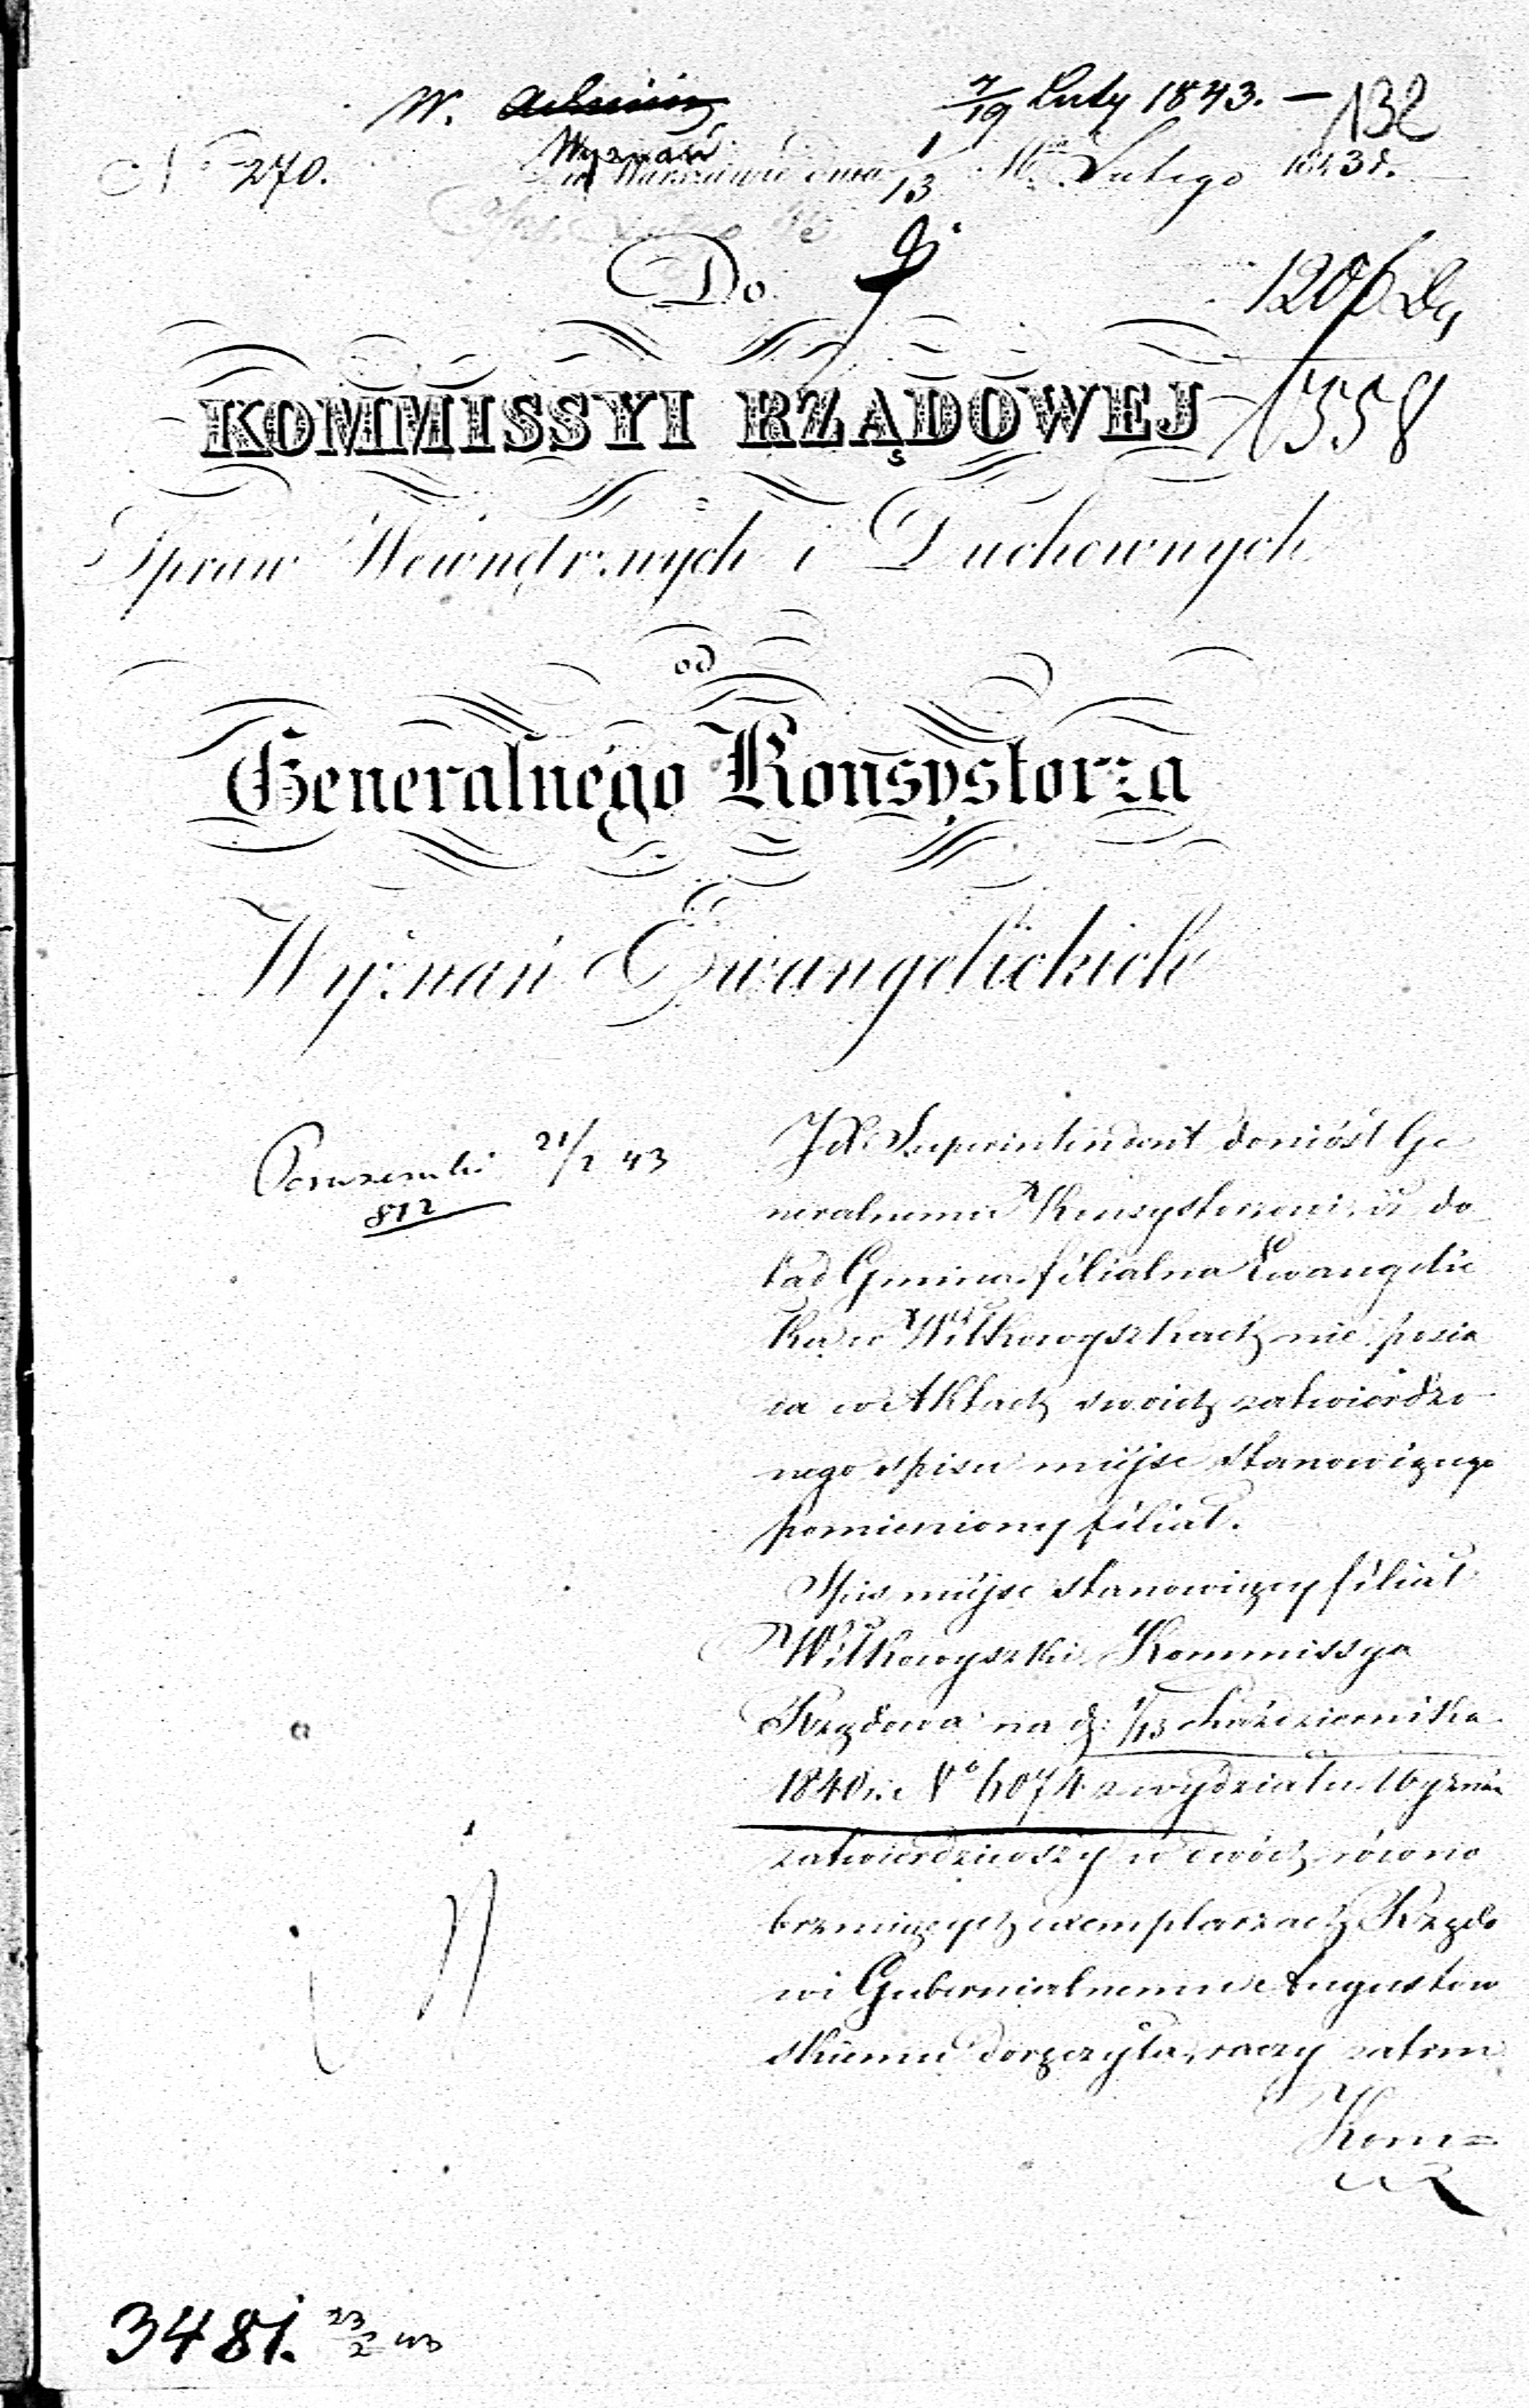 W. 7/19 Luty 1843. — 132
Wyznań
No 270. w Warszawie dnia 1/13 Mca Lutego 1843 r.
Do
1206
1358
KOMMISSYI RZĄDOWEJ
Spraw Wewnętrznych i Duchownych
od
Generalnego Konsystorza
Wyznań Ewangelickich
21/2 43
812
JX. Superintendent doniósł Ge
neralnemu Konsystorzowi, iż do
tąd Gmina filialna Ewangelic
ka w Wiłkowyszkach nie posia
da w Aktach swoich zatwierdzo
nego spisu miejsc stanowiącego
pomieniony filiał.
Spis miejsc stanowiący filiał
Wiłkowyszki Kommissya
Rządowa na d: 1/13 Października
1840 r. No 6074 z wydziału Wyznań
zatwierdziwszy w dwóch równo
brzmiących exemplarzach Rządo
wi Gubernialnemu Augustow
skiemu doręczyła, raczy zatem
Kom=
3481. 23/2 43